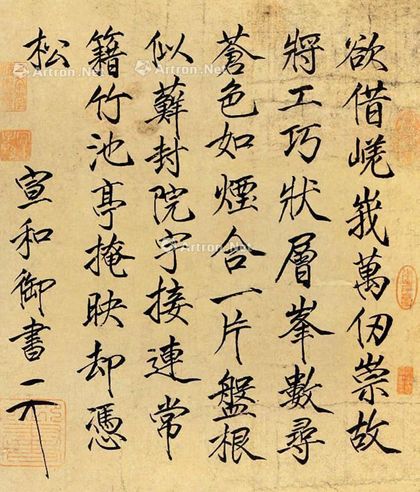 欲借嶢峩萬仞崇故
將工巧狀層峯數尋
蒼色如煙合一片盤根
似蘚封院宇接連常
籍竹池亭掩映却憑
松
宣和御書
Artron.Net